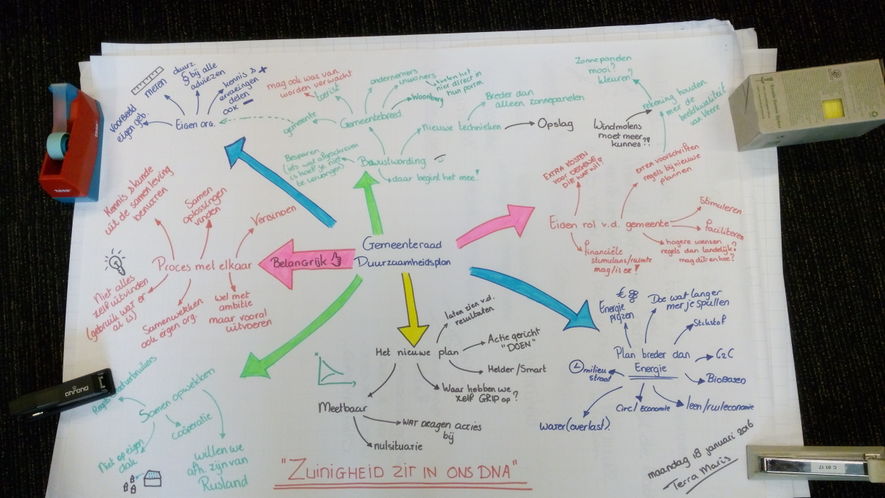 Gemeenteraad
Duurzaamheidsplan
Eigen org.
voorbeeld
eigen geb
meten
duurz.
§ bij alle
adviezen
kennis &
ervaringen
delen
ook
mag ook was van.
worden verwacht
bereik
gemeente
Gemeentebreed
ondernemers
inwoners
Woonborg
nieuwe technieken
Breder dan
alleen zonnepanelen
Opslag
Bewustwording
daar begint het mee!
Besparen
Zonnepanelen
mooi?
kleuren?
rekening houden
met de
beeldkwaliteit
van Veere
Windmolens
moet meer
kunnen?!
EXTRA KOSTEN
VOOR DEGENE
DIE WAT WIL?
extra voorschriften
regels bij nieuwe
plannen
Eigen rol v.d. gemeente
Stimuleren
Faciliteren
hogere wensen
regels dan landelijk?
mag dit en hoe?
financiële
stimulans/ruimte
mag/is er?
Belangrijk
Proces met elkaar
Kennis & kunde
uit de samenleving
benutten
Samen
oplossingen
vinden
Verbinden
Niet alles
zelf uitvinden
(gebruik wat er
al is)
Samenwerken
ook eigen org.
wel met
ambitie
maar vooral
uitvoeren
Samen opwekken
coöperatie
Niet op eigen
dak
willen we
afh. zijn van
Rusland
Het nieuwe plan
laten zien v.d.
resultaten
Actie gericht
"DOEN"
Helder/Smart
Waar hebben we
zelf GRIP op?
Meetbaar
WAT DRAGEN ACTIES
bij
nulsituatie
Plan breder dan
Energie
€
Energie
prijzen
Doe wat langer
met je spullen
Stikstof
C2C
BioBased
leen/ruileconomie
Circ/economie
water(overlast)
milieu
straat
"ZUINIGHEID ZIT IN ONS DNA"
maandag 18 januari 2016
Terra Maris